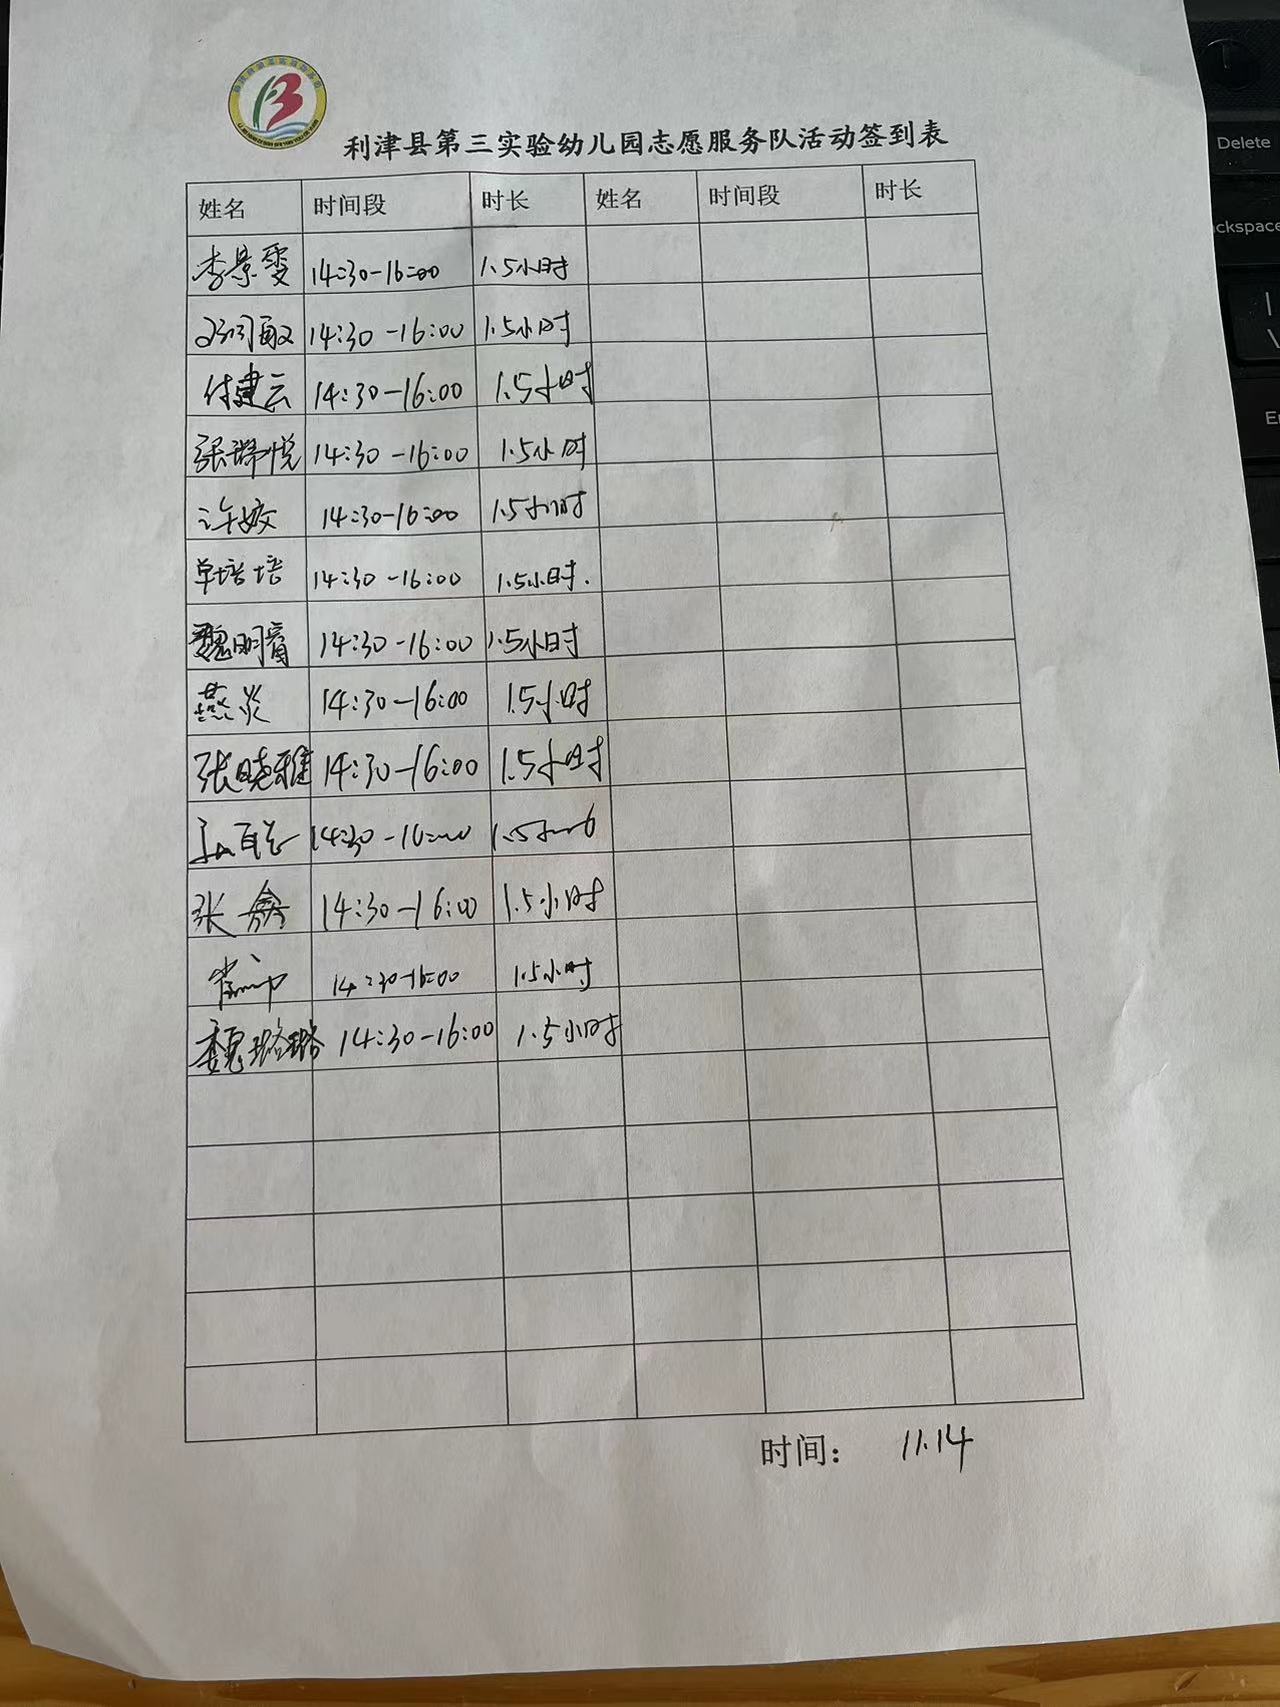 利津县第三实验幼儿园志愿服务队活动签到表
姓名 时间段 时长 姓名 时间段 时长
李景雯 14:30-16:00 1.5小时
14:30-16:00 1.5小时
付建云 14:30-16:00 1.5小时
张琳悦 14:30-16:00 1.5小时
许姣 14:30-16:00 1.5小时
单培培 14:30-16:00 1.5小时.
魏明霄 14:30-16:00 1.5小时
燕炎 14:30-16:00 1.5小时
张晓雅 14:30-16:00 1.5小时
14:30-16:00 1.5小时
张 14:30-16:00 1.5小时
14:30-16:00 1.5小时
魏璐璐 14:30-16:00 1.5小时
时间： 11.14
Delete
ckspace